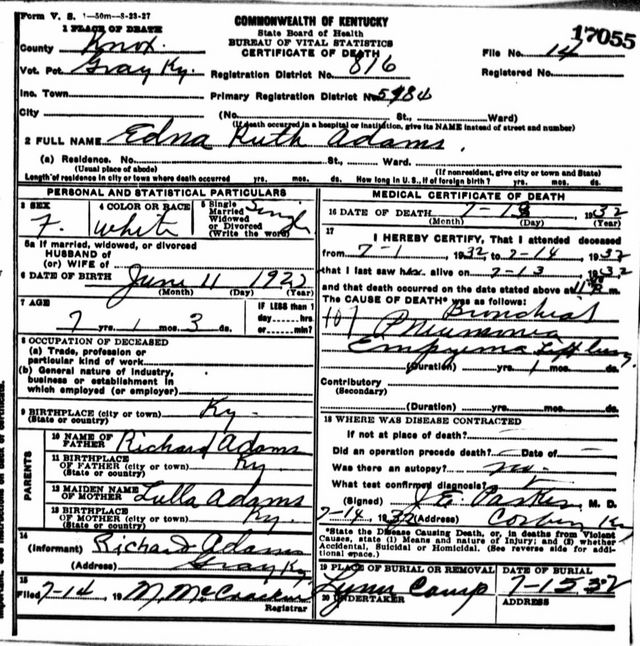 Form V. S. 1-50m-8-23-27
COMMONWEALTH OF KENTUCKY
State Board of Health
BUREAU OF VITAL STATISTICS
CERTIFICATE OF DEATH
17055
1 PLACE OF DEATH
County Knox. File No. 14
Vot. Pct Gray Ky. Registration District No. 816 Registered No.
Inc. Town Primary Registration District No.
City (No. St., Ward)
(If death occurred in a hospital or institution, give its NAME instead of street and number)
2 FULL NAME Edna Ruth Adams.
(a) Residence. No. St., Ward.
(Usual place of abode) (If nonresident, give city or town and State)
Length of residence in city or town where death occurred yrs. mos. ds. How long in U. S., if of foreign birth? yrs. mos. ds.
PERSONAL AND STATISTICAL PARTICULARS
3 SEX
F.
4 COLOR OR RACE
White
5 Single
Married
Widowed
or Divorced
(Write the word)
Single
5a If married, widowed, or divorced
HUSBAND of
(or) WIFE of
6 DATE OF BIRTH June 11
(Month) (Day) (Year)
7 AGE
7 yrs. 1 mos. 3 ds.
IF LESS than 1
day----hrs.
or------min?
8 OCCUPATION OF DECEASED
(a) Trade, profession or
particular kind of work
(b) General nature of industry,
business or establishment in
which employed (or employer)
9 BIRTHPLACE (city or town) Ky.
(State or country)
PARENTS
10 NAME OF
FATHER Richard Adams
11 BIRTHPLACE
OF FATHER (city or town) Ky
(State or country)
12 MAIDEN NAME
OF MOTHER Lulla Adams
13 BIRTHPLACE
OF MOTHER (city or town) Ky.
(State or country)
14
(Informant) Richard Adams
(Address) Gray Ky.
15
Filed 7-14, 19 M. McCracken
Registrar
MEDICAL CERTIFICATE OF DEATH
16 DATE OF DEATH 1932
(Month) (Day) (Year)
17
I HEREBY CERTIFY, That I attended deceased
from 7-1 1932 to 7-14, 1932
that I last saw her alive on 7-13 1932
and that death occurred on the date stated above at m.
The CAUSE OF DEATH* was as follows:
Bronchial
107 Pneumonia
Empyema Left lung
(Duration) yrs. 1 mos. ds.
Contributory
(Secondary)
(Duration) yrs. mos. ds.
18 WHERE WAS DISEASE CONTRACTED
if not at place of death?
Did an operation precede death? Date of
Was there an autopsy? no
What test confirmed diagnosis?
(Signed) J. E. Parker M. D.
7-14, 1932 (Address) Corbin Ky
*State the Disease Causing Death, or, in deaths from Violent
Causes, state (1) Means and nature of Injury; and (2) whether
Accidental, Suicidal or Homicidal. (See reverse side for addi-
tional space.)
19 PLACE OF BURIAL OR REMOVAL DATE OF BURIAL
Lynn Camp 7-15 32
20 UNDERTAKER ADDRESS